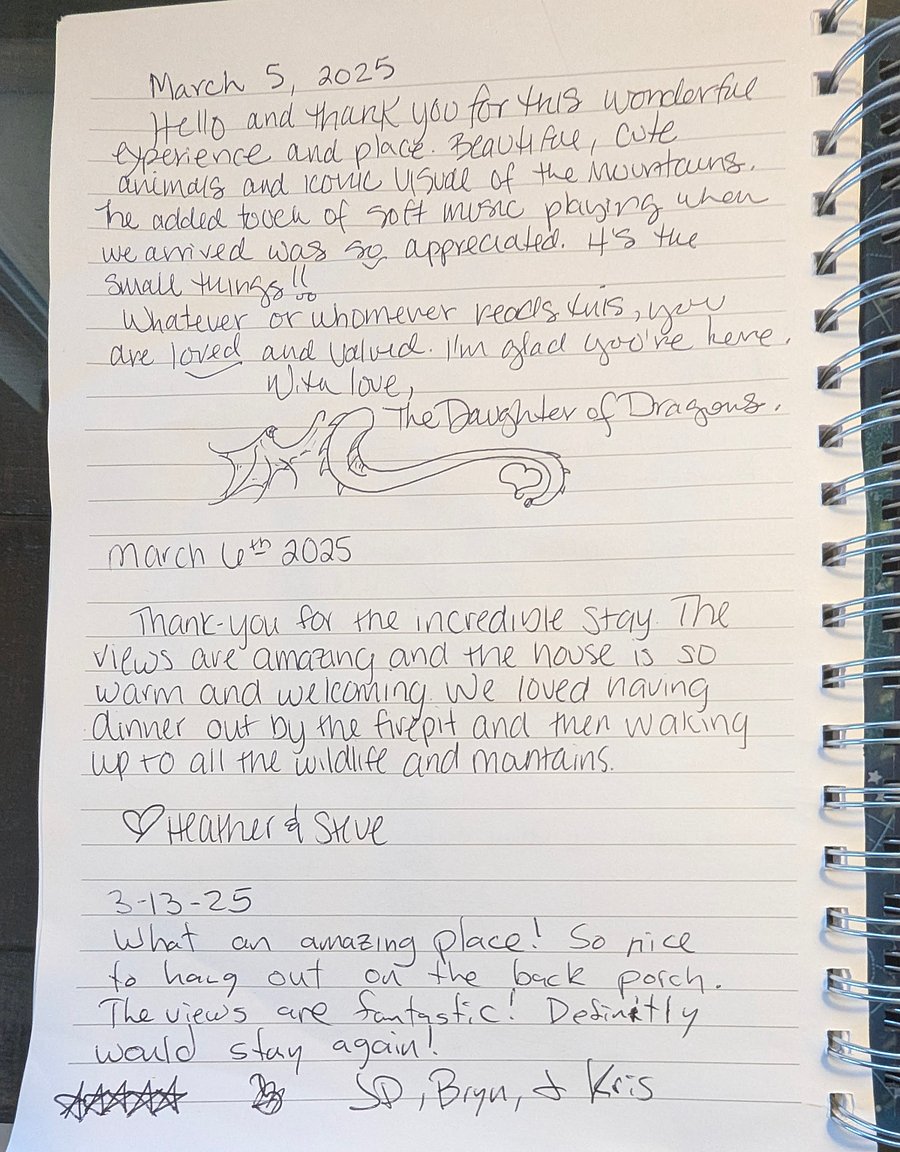 March 5, 2025
Hello and thank you for this wonderful
experience and place. Beautiful, cute
animals and iconic visual of the mountains.
The added touch of soft music playing when
we arrived was so appreciated. It's the
small things!!
Whatever or whomever reads this, you
are loved and valued. I'm glad you're here.
With love,
The Daughter of Dragons.
March 6th 2025
Thank-you for the incredible stay. The
views are amazing and the house is so
warm and welcoming. We loved having
dinner out by the firepit and then waking
up to all the wildlife and mantains.
♡ Heather & Steve
3-13-25
What an amazing place! So nice
to hang out on the back porch.
The views are fantastic! Definitly
would stay again!
SD, Bryn, & Kris